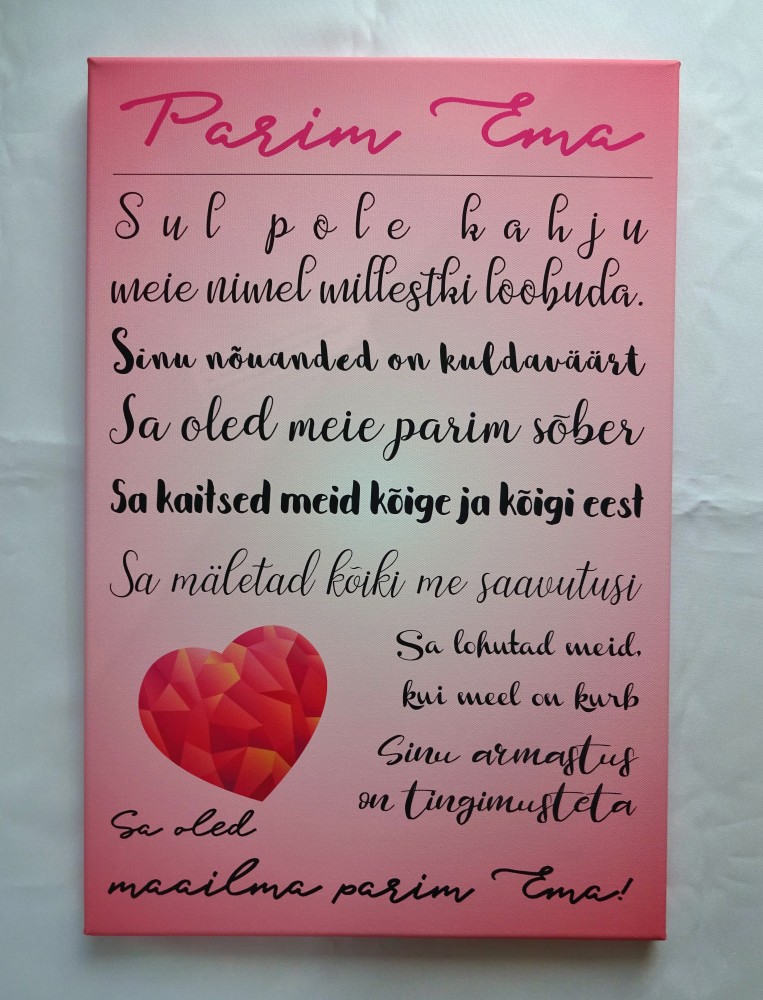 Parim Ema
Sul pole kahju
meie nimel millestki loobuda.
Sinu nõuanded on kuldaväärt
Sa oled meie parim sõber
Sa kaitsed meid kõige ja kõigi eest
Sa mäletad kõiki me saavutusi
Sa lohutad meid,
kui meel on kurb
Sinu armastus
on tingimusteta
Sa oled
maailma parim Ema!